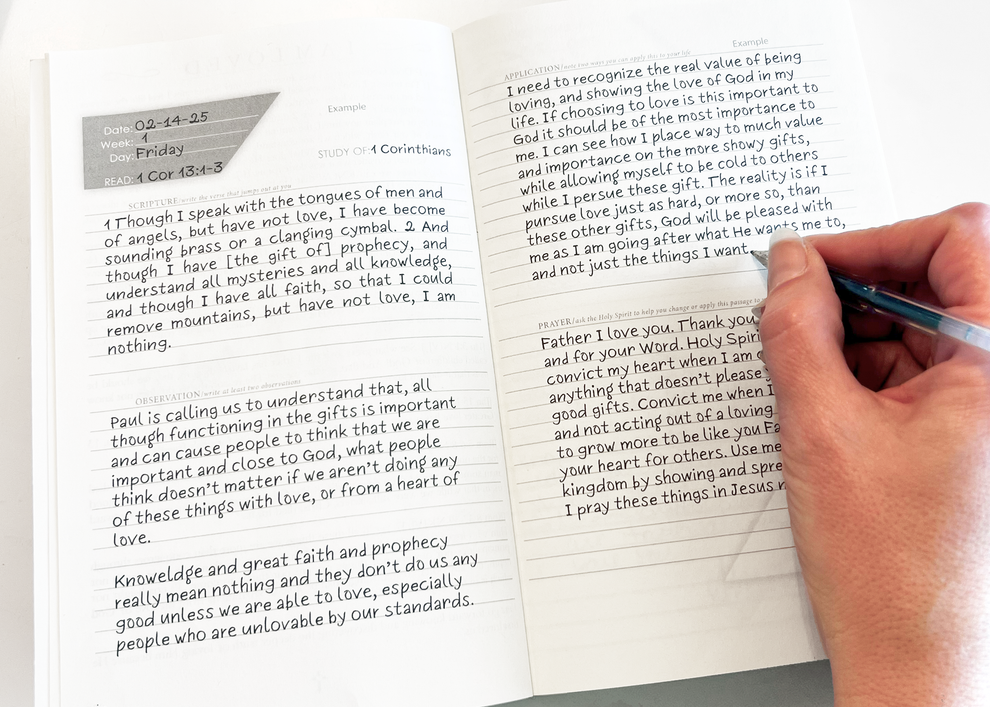 Example
Date: 02-14-25
Week: 1
Day: Friday
STUDY OF: 1 Corinthians
READ: 1 Cor 13:1-3
SCRIPTURE/write the verse that jumps out at you
1 Though I speak with the tongues of men and
of angels, but have not love, I have become
sounding brass or a clanging cymbal. 2 And
though I have [the gift of] prophecy, and
understand all mysteries and all knowledge,
and though I have all faith, so that I could
remove mountains, but have not love, I am
nothing.
OBSERVATION/write at least two observations
Paul is calling us to understand that, all
though functioning in the gifts is important
and can cause people to think that we are
important and close to God, what people
think doesn't matter if we aren't doing any
of these things with love, or from a heart of
love.
Knoweldge and great faith and prophecy
really mean nothing and they don't do us any
good unless we are able to love, especially
people who are unlovable by our standards.
Example
APPLICATION/note two ways you can apply this to your life
I need to recognize the real value of being
loving, and showing the love of God in my
life. If choosing to love is this important to
God it should be of the most importance to
me. I can see how I place way to much value
and importance on the more showy gifts,
while allowing myself to be cold to others
while I persue these gift. The reality is if I
pursue love just as hard, or more so, than
these other gifts, God will be pleased with
me as I am going after what He wants me to,
and not just the things I want.
PRAYER/ask the Holy Spirit to help you change or apply this passage to
Father I love you. Thank you
and for your Word. Holy
convict my heart when I am
anything that doesn't please
good gifts. Convict me when I
and not acting out of a loving
to grow more to be like you
your heart for others. Use me
kingdom by showing and
I pray these things in Jesus